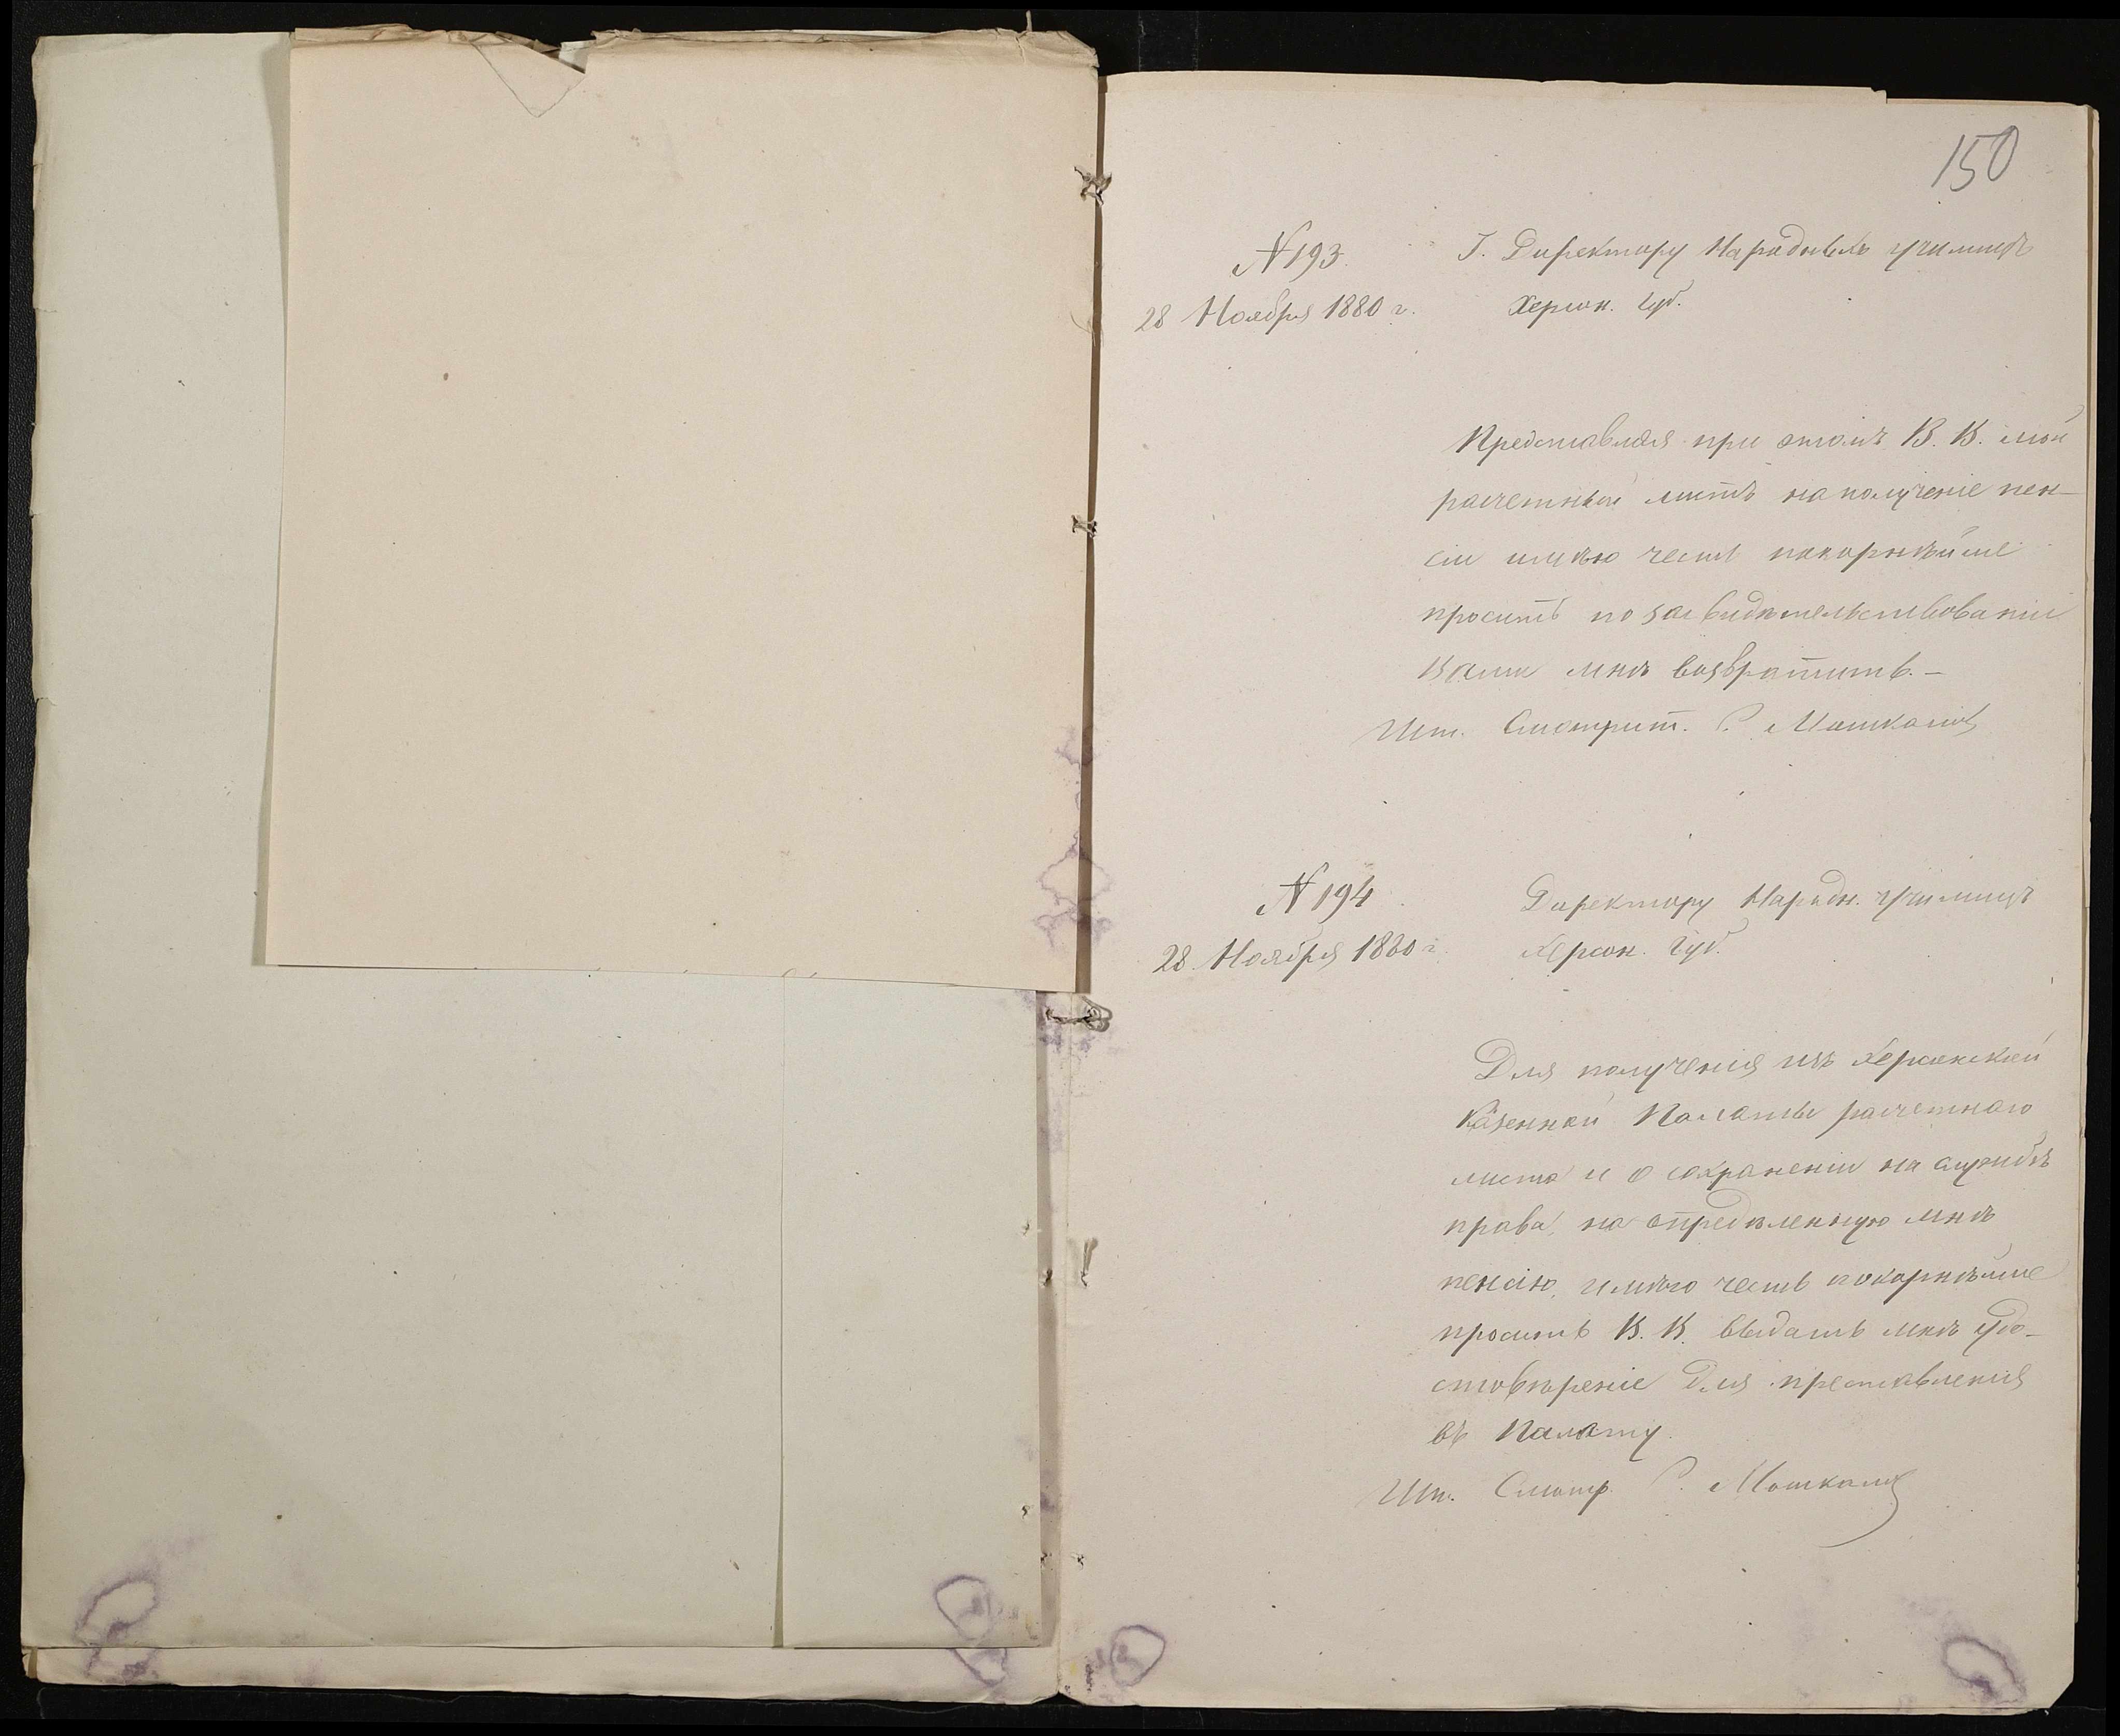 150
№ 193.
28 Ноября 1880 г.
Г. Директору Народныхъ училищъ
Херсон. Губ.
Представляя при этомъ В. В. мой
расчетный листъ на полученіе пен-
сіи имѣю честь покорнѣйше
просить по засвидѣтельствованіи
Вами мнѣ возвратить. —
Шт. Смотрит. С. Машкалов
№ 194
28 Ноября 1880 г.
Директору Народн. училищъ
Херсон. Губ.
Для полученія изъ Херсонской
Казенной Палаты расчетнаго
листа и о сохраненіи на службѣ
права на опредѣленную мнѣ
пенсію, имѣю честь покорнѣйше
просить В. В. выдать мнѣ удо-
стовѣреніе для преставленія
въ Палату.
Шт. Смотр. С. Машкалов